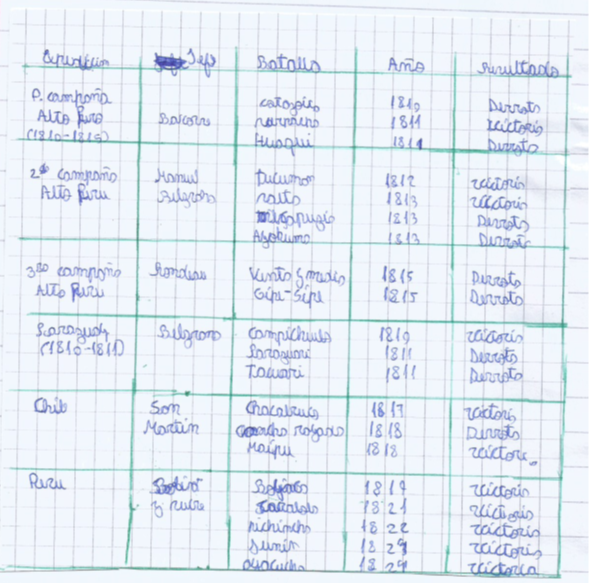 Expedición Jefe Batalla Año Resultado
P. campaña Cotagaita 1810 Derrota
Alto Perú Balcarce 1811 Victoria
(1810-1815) Huaqui 1811 Derrota
2º campaña Manuel Tucuman 1812 Victoria
Alto Piru Belgrano Salta 1813 Victoria
1813 Derrota
1813 Derrota
3ra campaña Rondeau Venta y media 1815 Derrota
Alto Piru Sipe-Sipe 1815 Derrota
Paraguay Belgrano Campichuelo 1810 Victoria
(1810-1811) Paraguari 1811 Derrota
Tacuari 1811 Derrota
Chile San Chacabuco 1817 Victoria
Martin cancha rayada 1818 Derrota
Maipu 1818 Victoria
Piru Bolivar 1819 Victoria
y sucre Carabobo 1821 Victoria
Pichincha 1822 Victoria
Junin 1824 Victoria
Ayacucho 1824 Victoria